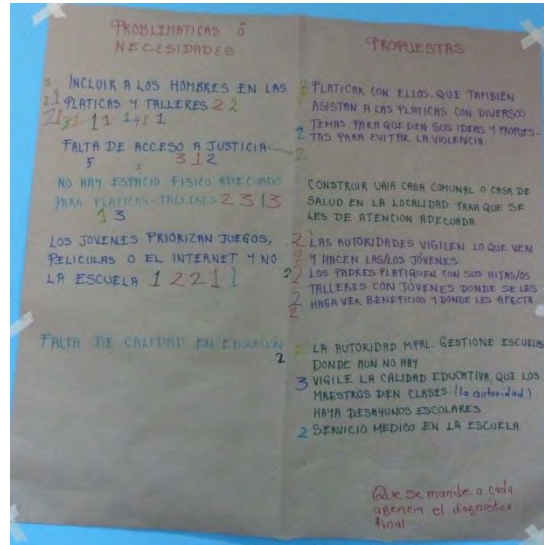 PROBLEMATICAS Ó
NECESIDADES
INCLUIR A LOS HOMBRES EN LAS
PLATICAS Y TALLERES 2 2
FALTA DE ACCESO A JUSTICIA
5 3 1 2
NO HAY ESPACIO FISICO ADECUADO
PARA PLATICAS-TALLERES 2 3 1 3
1 3
LOS JOVENES PRIORIZAN JUEGOS,
PELICULAS O EL INTERNET Y NO
LA ESCUELA 1 2 2 1 1
FALTA DE CALIDAD EN EDUCACIÓN
2
PROPUESTAS
2 PLATICAR CON ELLOS. QUE TAMBIEN
ASISTAN A LAS PLATICAS CON DIVERSOS
2 TEMAS PARA QUE DEN SUS IDEAS Y PROPUES-
TAS PARA EVITAR LA VIOLENCIA
2
CONSTRUIR UNA CASA COMUNAL O CASA DE
SALUD EN LA LOCALIDAD PARA QUE SE
LES DE ATENCION ADECUADA.
2 LAS AUTORIDADES VIGILEN LO QUE VEN
2 Y HACEN LAS/LOS JÓVENES
2 LOS PADRES PLATIQUEN CON SUS HIJAS/OS
TALLERES CON JÓVENES DONDE SE LES
2 HAGA VER BENEFICIOS Y DONDE LES AFECTA
2
LA AUTORIDAD MPAL. GESTIONE ESCUELAS
DONDE AUN NO HAY
3 VIGILE LA CALIDAD EDUCATIVA, QUE LOS
MAESTROS DEN CLASES. (la autoridad)
HAYA DESAYUNOS ESCOLARES
2 SERVICIO MEDICO EN LA ESCUELA
Que se mande a cada
agencia el diagnóstico
final